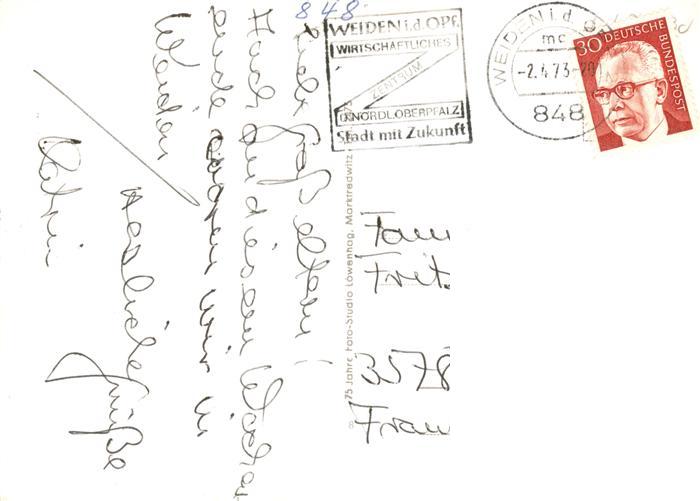 848
WEIDEN i.d. OPF.
WIRTSCHAFTLICHES
ZENTRUM
i. NORDL.OBERPFALZ
Stadt mit Zukunft
WEIDEN i.d.
mc
-2.4.73-20
848
30 DEUTSCHE BUNDESPOST
Liebe Großeltern!
Auch an diesem Wochen
ende waren wir in
Weiden
Herzliche Grüße
75 Jahre Foto-Studio Löwenhag, Marktredwitz
Fam
Frit
3578
Fran